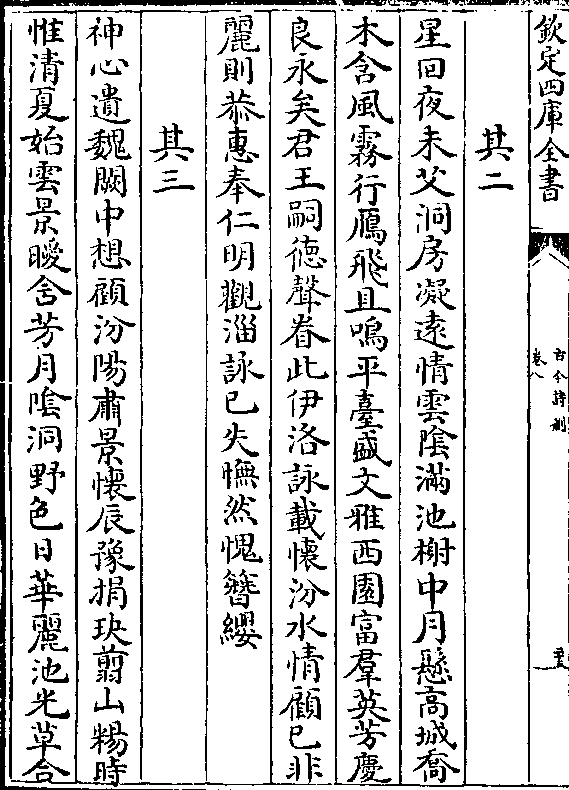 欽定四庫全書
古今詩刪
卷八
其二
星回夜未艾洞房凝遠情雲陰滿池榭中月懸高城喬
木含風霧行鴈飛且鳴平臺盛文雅西園富羣英芳慶
良永矣君王嗣德聲眷此伊洛詠載懷汾水情顧已非
麗則恭惠奉仁明觀淄詠已失憮然愧簪纓
其三
神心遺魏闕中想顧汾陽肅景懷辰豫捐玦翦山楊時
惟清夏始雲景曖含芳月陰洞野色日華麗池光草合